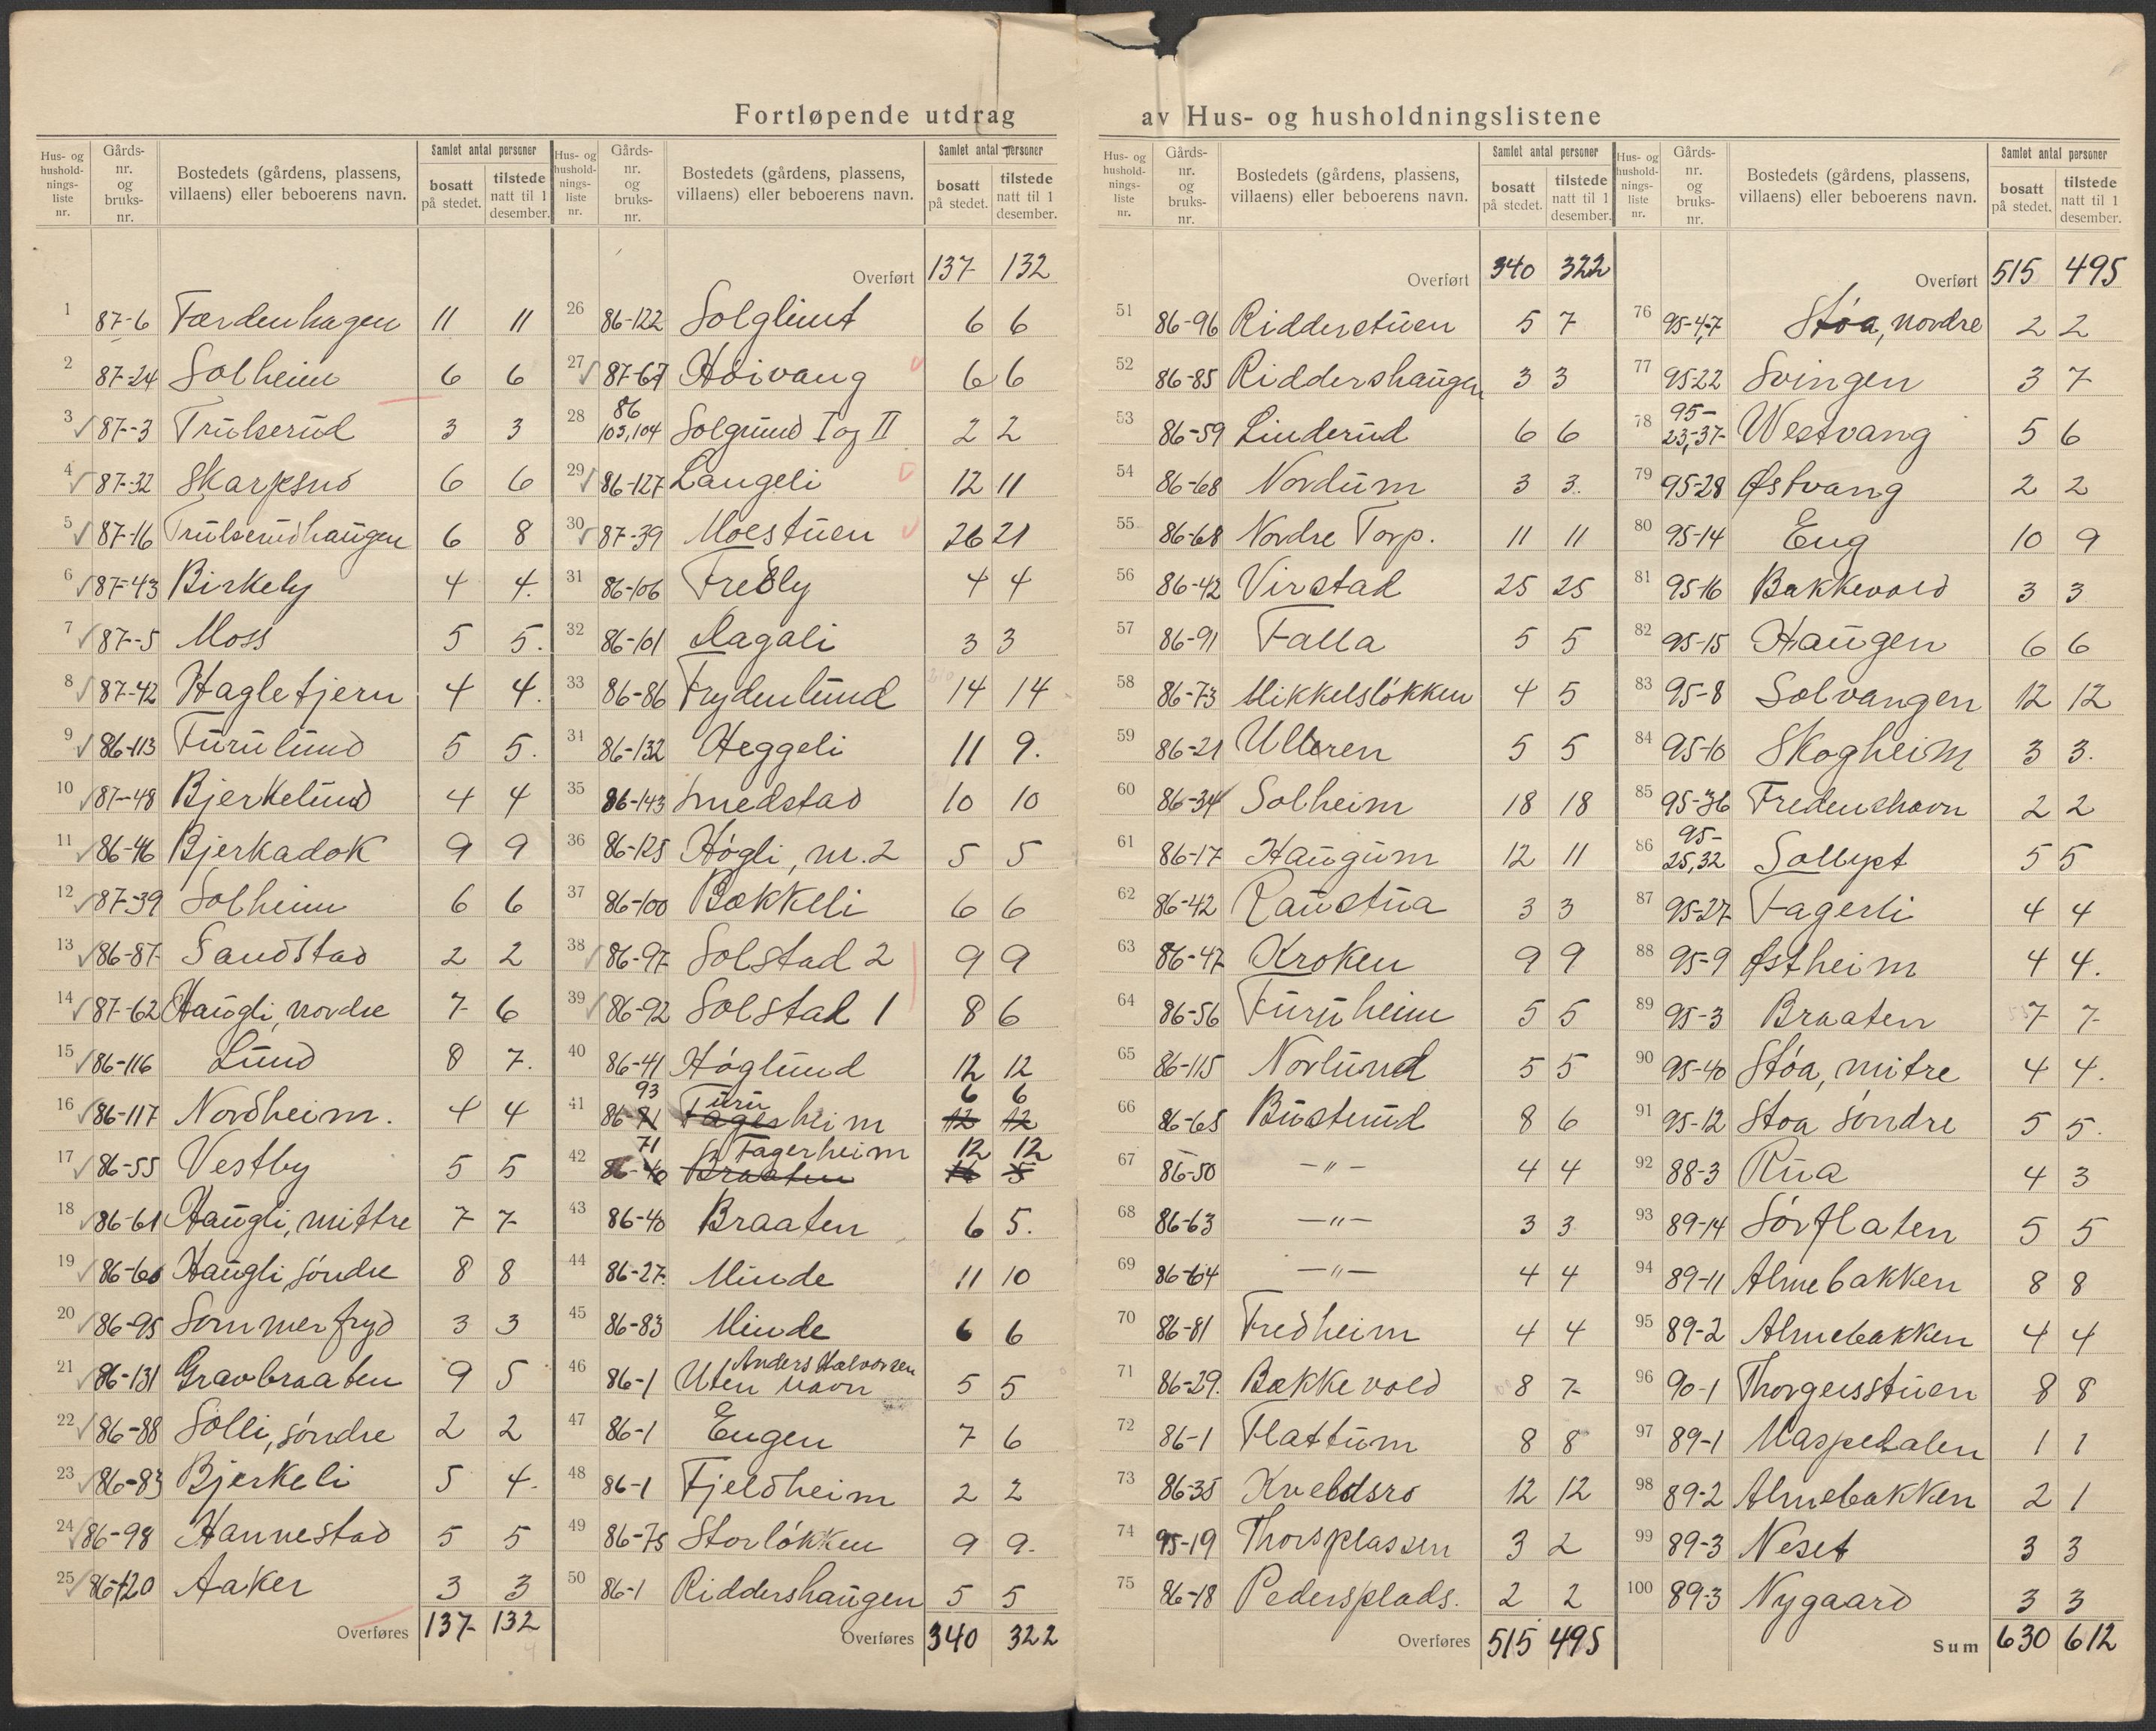 Fortløpende utdrag av Hus- og husholdningslistene
Hus- og hushold-nings-liste nr. | Gårds-nr. og bruks-nr. | Bostedets (gårdens, plassens, villaens) eller beboerens navn. | Samlet antal personer | bosatt på stedet. | tilstede natt til 1 desember.
1 87-6 Færdenhagen 11 11
2 87-24 Solheim 6 6
3 87-3 Trulserud 3 3
4 87-32 Skarpsno 6 6
5 87-16 Trulserudhaugen 6 8
6 87-43 Birkely 4 4.
7 87-5 Moss 5 5.
8 87-42 Hagletjern 4 4.
9 86-113 Furulund 5 5.
10 87-48 Bjerkelund 4 4
11 86-46 Bjerkadok 9 9
12 87-39 Solheim 6 6
13 86-87 Sandstad 2 2
14 87-62 Haugli, nordre 7 6
15 86-116 Lund 8 7.
16 86-117 Nordheim. 4 4
17 86-55 Vestby 5 5
18 86-61 Haugli, mittre 7 7
19 86-60 Haugli, søndre 8 8
20 86-95 Sommerfryd 3 3
21 86-131 Gravbraaten 9 5
22 86-88 Solli, søndre 2 2
23 86-83 Bjerkeli 5 4.
24 86-98 Hannestad 5 5
25 86-120 Aaker 3 3
Overføres 137 132
Hus- og hushold-nings-liste nr. | Gårds-nr. og bruks-nr. | Bostedets (gårdens, plassens, villaens) eller beboerens navn. | Samlet antal personer | bosatt på stedet. | tilstede natt til 1 desember.
Overført 137 132
26 86-122 Solglimt 6 6
27 87-67 Høivang 6 6
28 86 103,104 Solgrund I og II 2 2
29 86-127 Langeli 12 11
30 87-39 Moestuen 26 21
31 86-106 Fredly 4 4
32 86-101 Dagali 3 3
33 86-86 Frydenlund 14 14
34 86-132 Heggeli 11 9.
35 86-143 Smedstad 10 10
36 86-125 Høgli, nr. 2 5 5
37 86-100 Bækkeli 6 6
38 86-97 Solstad 2 9 9
39 86-92 Solstad 1 8 6
40 86-41 Høglund 12 12
93 uru 6 6
41 86-71 Fagerheim 12 12
71 Fagerheim 12 12
42 86-40 Braaten 5
43 86-40 Braaten 6 5.
44 86-27. Minde 11 10
45 86-83 Minde 6 6
Anders Halvorsen
46 86-1 Uten navn 5 5
47 86-1 Eugen 7 6
48 86-1 Fjeldheim 2 2
49 86-75 Storløkken 9 9.
50 86-1 Riddershaugen 5 5
Overføres 340 322
Hus- og hushold-nings-liste nr. | Gårds-nr. og bruks-nr. | Bostedets (gårdens, plassens, villaens) eller beboerens navn. | Samlet antal personer | bosatt på stedet. | tilstede natt til 1 desember.
Overført 340 322
51 86-96 Ridderstuen 5 7
52 86-85 Riddershaugen 3 3
53 86-59 Linderud 6 6
54 86-68 Nordum 3 3.
55 86-68 Nordre Torp. 11 11
56 86-42 Virstad 25 25
57 86-91 Falla 5 5
58 86-73 Mikkelsløkken 4 5
59 86-21 Ulleren 5 5
60 86-34 Solheim 18 18
61 86-17 Haugum 12 11
62 86-42 Raustua 3 3
63 86-47 Kroken 9 9
64 86-56 Furuheim 5 5
65 86-115 Norlund 5 5
66 86-65 Busterud 8 6
67 86-50 —"— 4 4
68 86-63 —"— 3 3
69 86-64 —"— 4 4
70 86-81 Fredheim 4 4
71 86-29. Bækkevold 8 7
72 86-1 Flattum 8 8
73 86-35 Kveldsro 12 12
74 95-19 Thorsplassen 3 2
75 86-18 Pedersplads. 2 2
Overføres 515 495
Hus- og hushold-nings-liste nr. | Gårds-nr. og bruks-nr. | Bostedets (gårdens, plassens, villaens) eller beboerens navn. | Samlet antal personer | bosatt på stedet. | tilstede natt til 1 desember.
Overført 515 495
76 95-4,7 Støa, nordre 2 2
77 95-22 Svingen 3 7
78 95-23,37 Westvang 5 6
79 95-28 Østvang 2 2
80 95-14 Eng 10 9
81 95-16 Bakkevold 3 3
82 95-15 Haugen 6 6
83 95-8 Solvangen 12 12
84 95-10 Skogheim 3 3.
85 95-36 Fredenshavn 2 2
86 95-25,32 Sollyst 5 5
87 95-27 Fagerli 4 4
88 95-9 Østheim 4 4.
89 95-3 Braaten 7 7
90 95-40 Støa, mitre 4 4.
91 95-12 Støa søndre 5 5.
92 88-3 Rua 4 3
93 89-14 Sørflaten 5 5
94 89-11 Almebakken 8 8
95 89-2 Almebakken 4 4
96 90-1 Thorgersstuen 8 8
97 89-1 Maspedalen 1 1
98 89-2 Almebakken 2 1
99 89-3 Neset 3 3
100 89-3 Nygaard 3 3
Sum 630 612